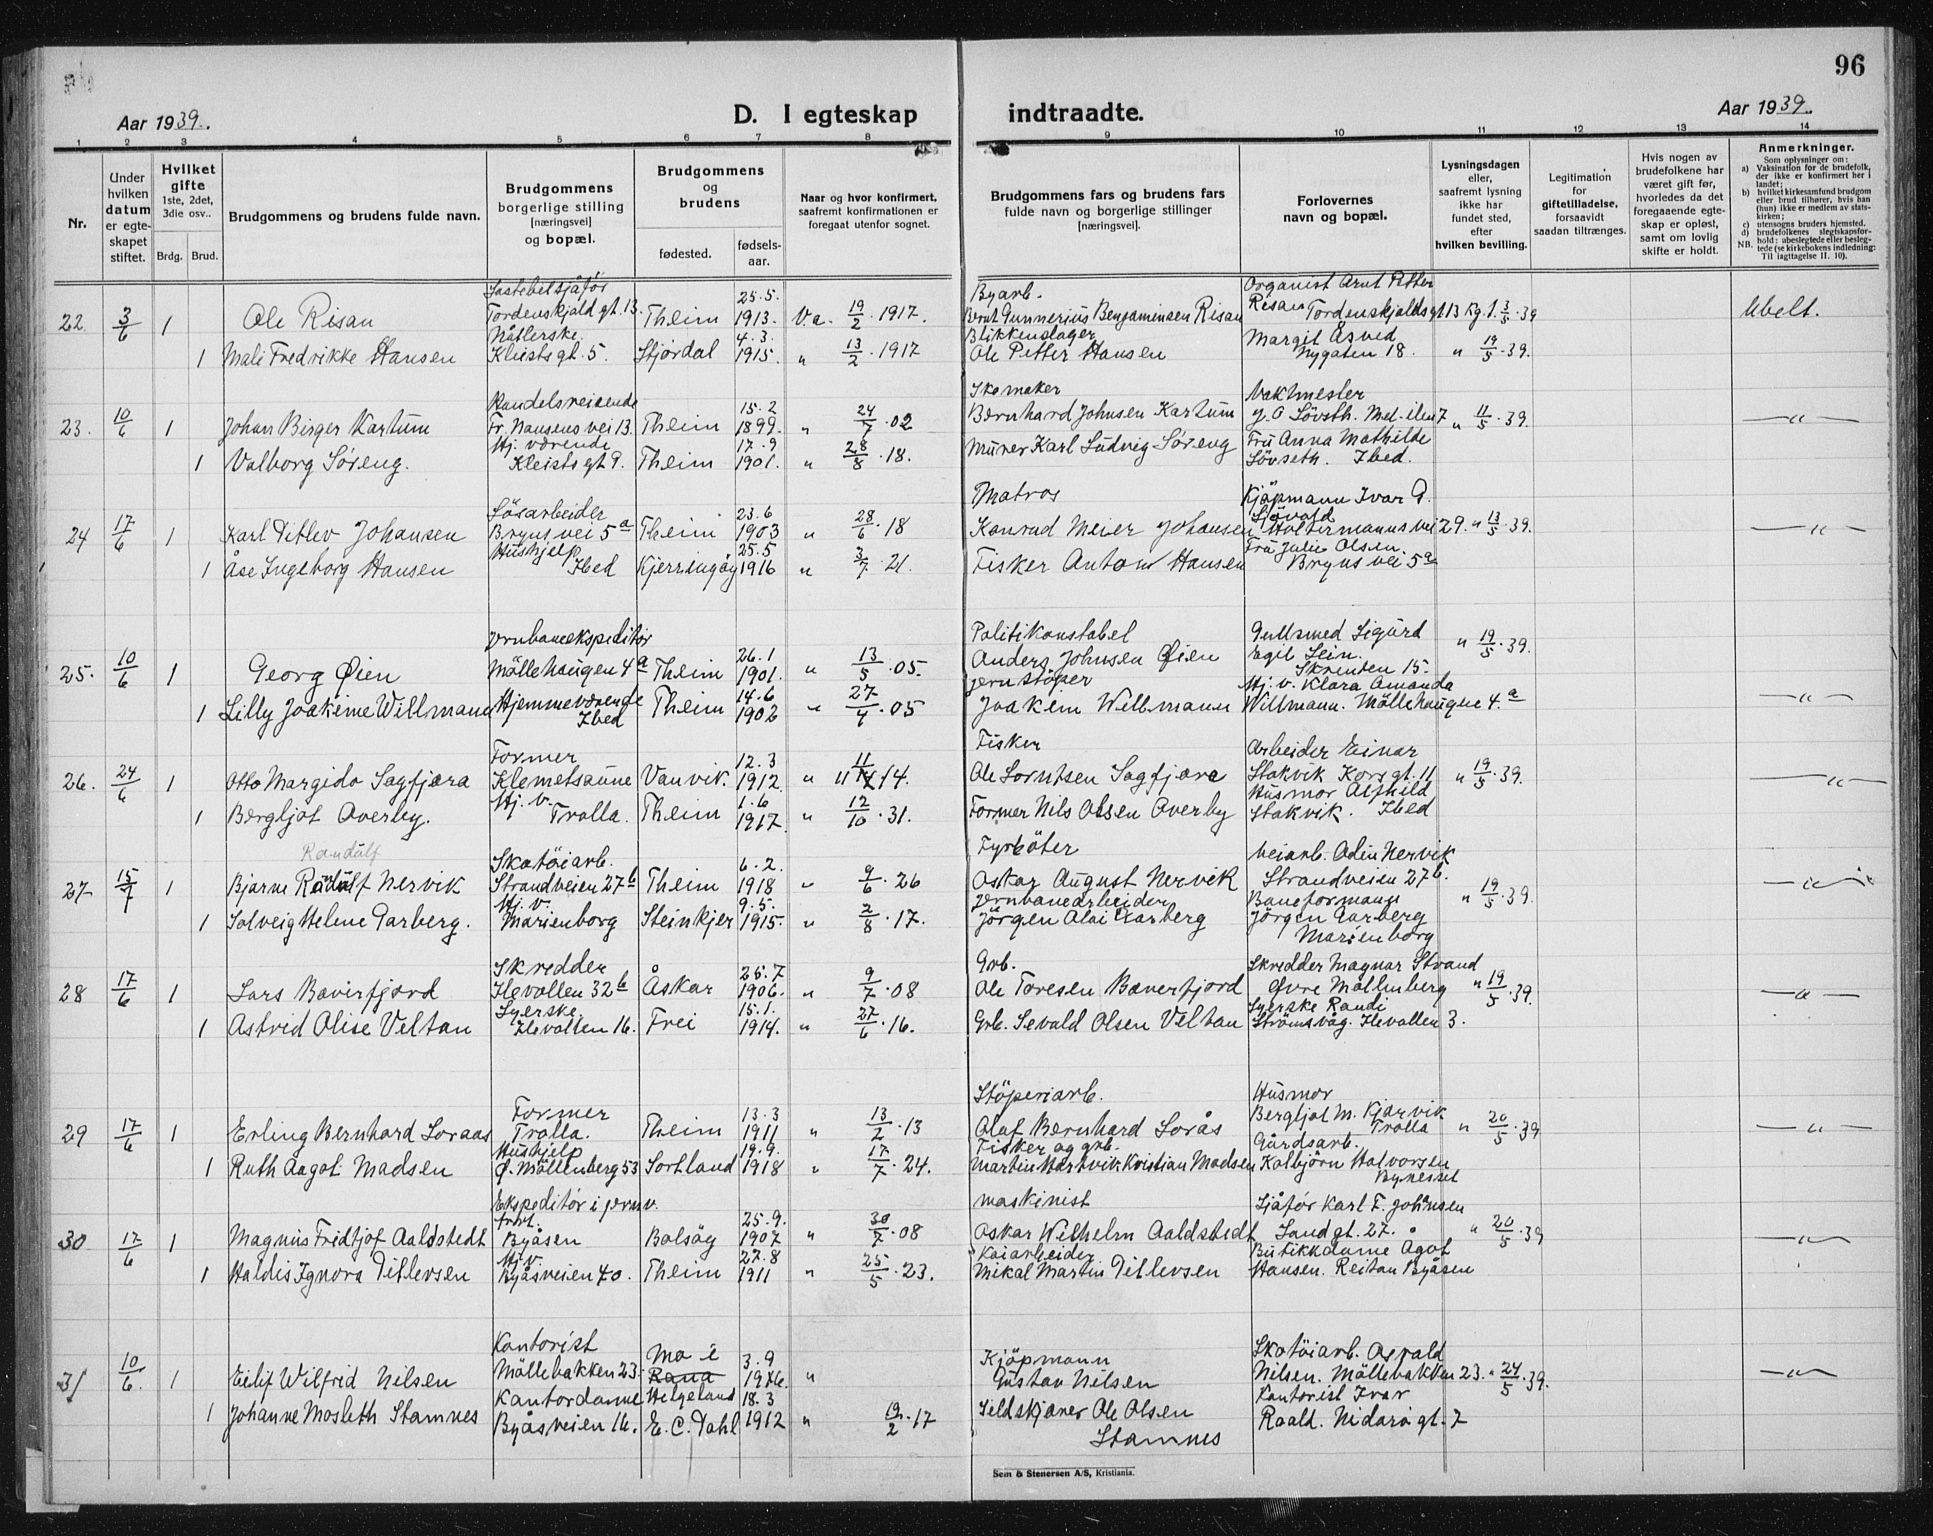 96
Aar 1939.
D. I egteskap indtraadte.
Aar 1939.
1 2 3 4 5 6 7 8 9 10 11 12 13 14
Nr.
Under hvilken datum er egteskapet stiftet.
Hvilket gifte 1ste, 2det, 3die osv..
Brdg. Brud.
Brudgommens og brudens fulde navn.
Brudgommens borgerlige stilling [næringsvei] og bopæl.
Brudgommens og brudens
fødested. fødsels-aar.
Naar og hvor konfirmert, saafremt konfirmationen er foregaat utenfor sognet.
Brudgommens fars og brudens fars fulde navn og borgerlige stillinger [næringsvei].
Forlovernes navn og bopæl.
Lysningsdagen eller, saafremt lysning ikke har fundet sted, efter hvilken bevilling.
Legitimation for giftetilladelse, forsaavidt saadan tiltrænges.
Hvis nogen av brudefolkene har været gift før, hvorledes da det foregaaende egteskap er opløst, samt om lovlig skifte er holdt.
Anmerkninger.
Som oplysninger om:
a) Vaksination for de brudefolk, der ikke er konfirmert her i landet;
b) hvilket kirkesamfund brudgom eller brud tilhører, hvis han (hun) ikke er medlem av statskirken;
c) utensogns bruders hjemsted.
d) brudefolkenes slegtskapsforhold: ubeslegtede eller beslegtede (se kirkebokens indledning: Til iagttagelse II. 10).
NB.
Lastebilsjåfør Byarb. Organist Arnt Petter
22. 3/6 1 Ole Risan Tordenskjold gt. 13. Theim 25.5. 1913. Va. 19/2 . 1917. Bernt Gunnerius Benjaminsen Risan Risan Tordenskjoldsgt 13 Kg. 1. 3/5 . 39 Ubelt.
Nåtlerske Blikkenslager Margit Åsved
1 Mali Fredrikke Hansen Kleists gt. 5. Stjørdal 4.3. 1915. " 13/2 . 1917 Ole Petter Hansen Nygaten 18. " 19/5 . 39.
Handelsreisende Skomaker Vaktmester
23. 10/6 1 Johan Birger Kartum Fr. Nansens vei 13. Theim 15.2 1899. " 24/7 . 02 Bernhard Johnsen Kartum J. O. Lövseth. Mel-ilen 7 " 11/5 . 39. —"—
Hj. værende Fru Anna Mathilde
1 Valborg Søreng. Kleists gt 9. Theim 17.9 1901. " 28/8 . 18. Murer Karl Ludvig Søreng Lövseth. Ibed.
Løsarbeider Matros Kjøpmann Ivar G.
24 17/6 1 Karl Ditlev Johansen Bryns vei 5a Theim 23.6 1903 " 28/6 . 18 Konrad Meier Johansen Holtermanns vei 29. " 13/5 . 39. —"—
Hushjelp Fru Julie Olsen.
1 Åse Ingeborg Hansen Ibed Kjerringøy 25.5 1916 " 3/7 . 21. Fisker Anton Hansen Bryns vei 5a
Jernbaneekspeditør Politikonstabel Gullsmed Sigurd
25. 10/6 1 Georg Øien Möllehaugen 4a Theim 26.1 1901. " 13/5 . 05. Anders Johnsen Øien Egil Lein. Skrenten 15. " 19/5 . 39.
Hjemmeværende Jernstöper Hj. v. Klara Amanda
1 Lilly Joakime Willmann Ibed Theim 14.6 1902 " 27/4 . 05 Joakim Willmann Willmann. Möllehaugen 4.a —"—
Former Fisker Arbeider Einar
26. 24/6 1 Otto Margido Sagfjæra Klemetsaune Vanvik. 12.3 1912 " Ole Lorntsen Sagfjære Stokvik Korsgt. 11 " 19/5 . 39. —"—
Hj. v. Husmor Alfhild
1 Bergljot Overby. Trolla. Theim 1.6 1917. " 12/10 . 31. Former Nils Olsen Overby Stokvik. Ibed
Randulf
Skotöiarb. Fyrböter Veiarb. Odin Nervik
27 15/7 1 Bjarne Randulf Nervik Strandveien 27b Theim 6.2. 1918 " 9/6 . 26 Oskar August Nervik Strandveien 27b. " 19/5 . 39. —"—
Hj. v. Jernbanearbeider Baneformann
1 Solveig Helene Garberg. Marienborg Steinkjer 9.5. 1915. " 2/8 . 17. Jörgen Olai Garberg Jörgen Garberg
Marienborg
Skredder Grb. Skredder Magnar Strand
28 17/6 1 Lars Bæverfjord Ilevollen 32b Åskar 26.7 1906. " 9/7 . 08 Ole Toresen Bæverfjord Øvre Möllenberg " 19/5 . 39. —"—
Syerske Syerske Randi
1 Astrid Olise Veltan Ilevollen 16. Frei 15.1. 1914. " 27/6 . 16. Grb. Sevald Olsen Veltan Strömsvåg. Ilevollen 3.
Former Stöperiarb. Husmor
29 17/6 1 Erling Bernhard Soraas Trolla. Theim 13.3 1911 " 13/2 . 13 Olaf Bernhard Sorås Bergljot M. Kjørvik Trolla " 20/5 . 39 —"—
Hushjelp Fisker og grb. Gårdsarb.
1 Ruth Aagot Madsen Ø. Möllenberg 53 Sortland 19.9. 1918 " 17/7 . 24. Martin Hartvik Kristian Madsen Kolbjörn Halvorsen
Byneset
Ekspeditør i jernv. forr. Maskinist Sjåför Karl F. Johnsen
30 17/6 1 Magnus Fridtjof Aaldstedt Byåsen Bolsöy 25.9. 1907 " 30/7 . 08 Oskar Wilhelm Aaldstedt Sandgt. 27. " 20/5 . 39 —"—
Hj. v. Kaiarbeider Butikkdame Ågot
1 Haldis Ignora Ditlevsen Byåsveien 40. Theim 27.8 1911 " 25/5 . 23. Mikal Martin Ditlevsen Hansen. Reitan Byåsen
Kontorist Mo i Kjöpmann Skotöiarb. Osvald
31 10/6. 1 Eilif Wilfrid Nilsen Möllebakken 23. Rana 3.9 1916. " Gustav Nilsen Nilsen. Möllebakken 23. " 24/5 . 39. —"—
Kontordame Helgeland Kontorist Ivar
1 Johanne Mosleth Stamnes Byåsveien 16. E. C. Dahl 18.3 1912 " 19/2 . 17 Sildskjører Ole Olsen Roald. Nidarögt. 7
Stamnes
Sem & Stenersen A/S, Kristiania.